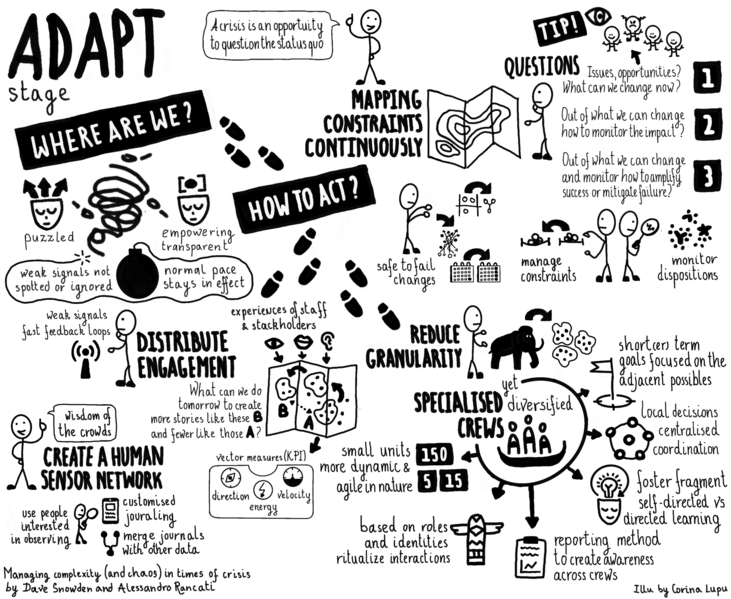 ADAPT
stage
A crisis is an opportuity
to question the status quo
TIP!
WHERE ARE WE?
MAPPING
CONSTRAINTS
CONTINUOUSLY
QUESTIONS
Issues, opportunities?
What can we change now?
1
Out of what we can change
how to monitor the impact?
2
Out of what we can change
and monitor how to amplify
success or mitigate failure?
3
puzzled
empowering
transparent
weak signals not
spotted or ignored
normal pace
stays in effect
HOW TO ACT?
safe to fail
changes
manage
constraints
monitor
dispositions
weak signals
fast feedback loops
DISTRIBUTE
ENGAGEMENT
experiences of staff
& stackholders
B
A
What can we do
tomorrow to create
more stories like these B
and fewer like those A?
vector measures (KPI)
direction
energy
velocity
wisdom of
the crowds
CREATE A HUMAN
SENSOR NETWORK
use people
interested
in observing
customised
jouraling
merge journals
with other data
REDUCE
GRANULARITY
yet
diversified
SPECIALISED
CREWS
small units
more dynamic &
agile in nature
150
5 15
short(er) term
goals focused on the
adjacent possibles
local decisions
centralised
coordination
foster fragment
self-directed vs
directed learning
based on roles
and identities
ritualize interactions
reporting method
to create awareness
across crews
Managing complexity (and chaos) in times of crisis
by Dave Snowden and Alessandro Rancati
Illu by Corina Lupu